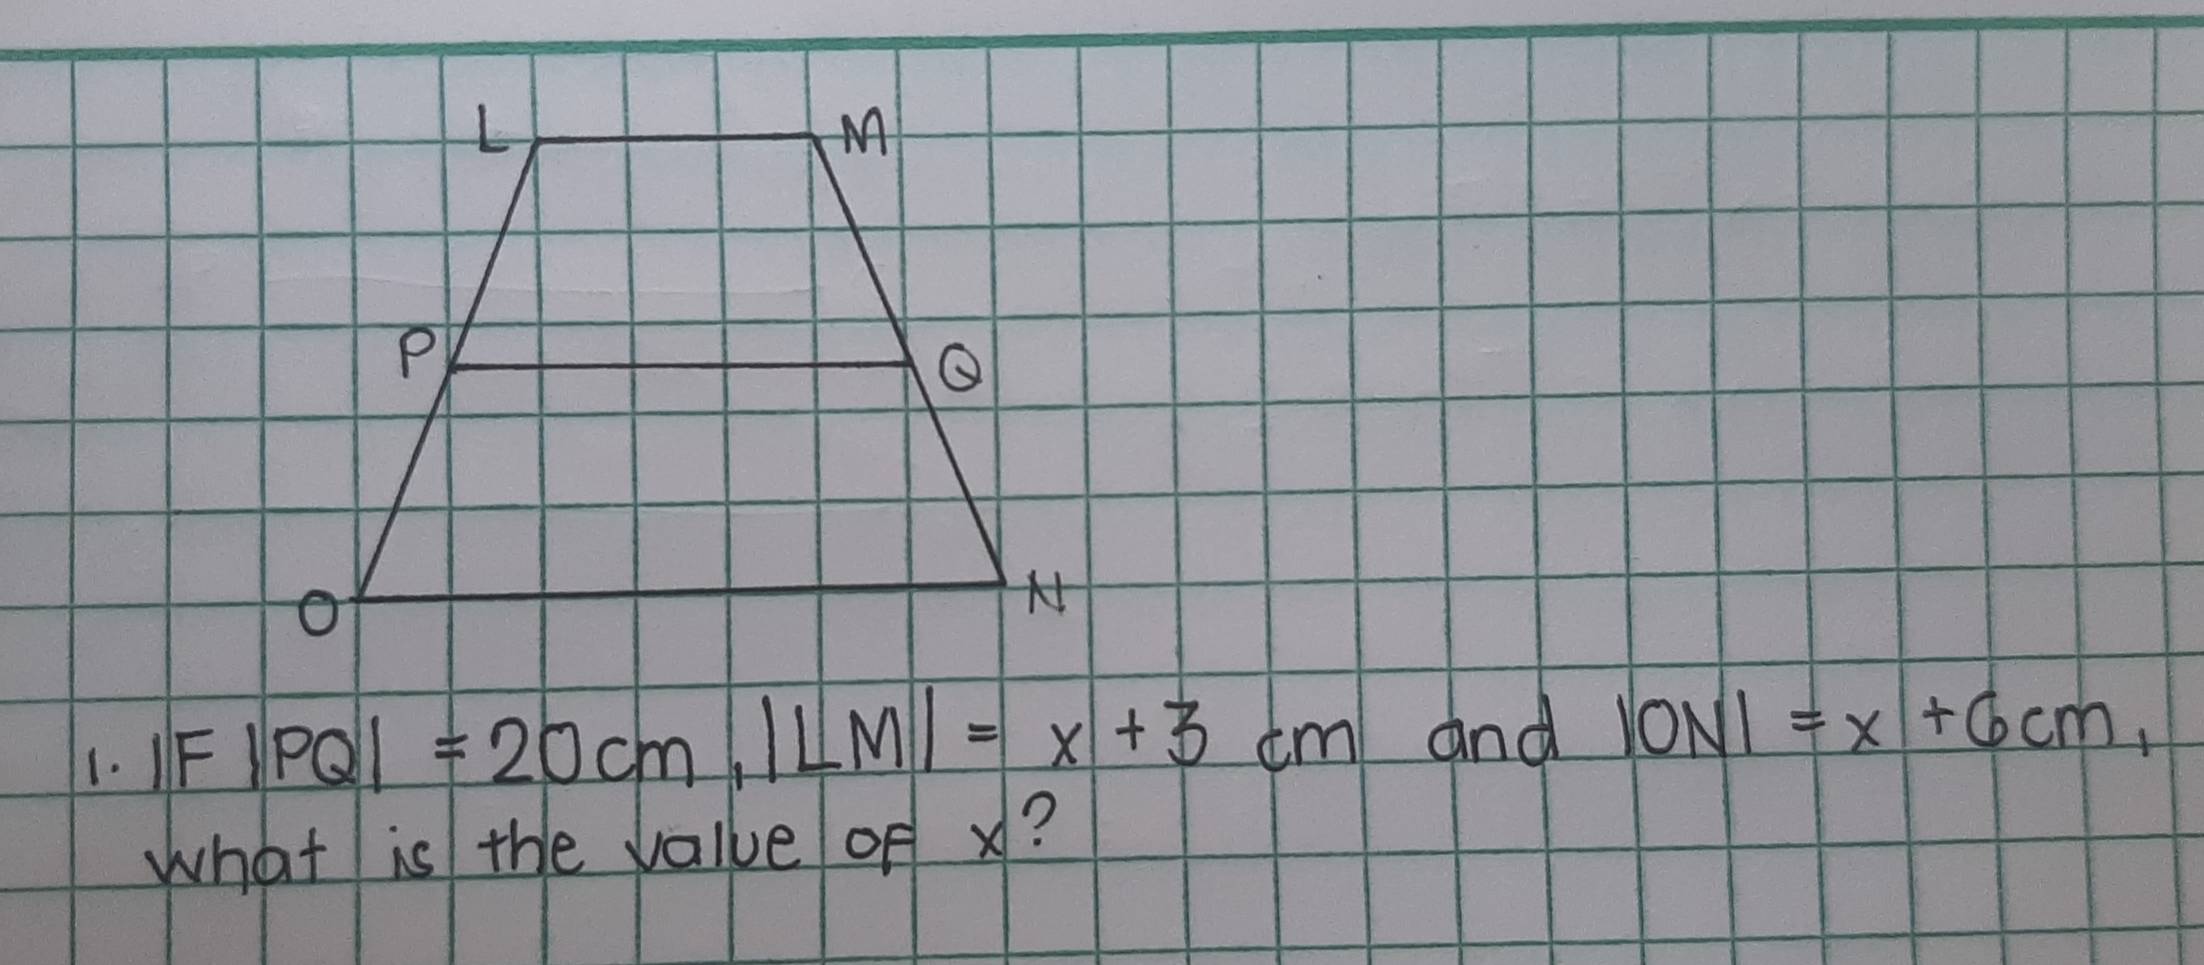 L M
P Q
O N
1. IF |PQ| = 20cm, |LM| = x + 3 cm and |ON| = x + 6cm,
what is the value of x?